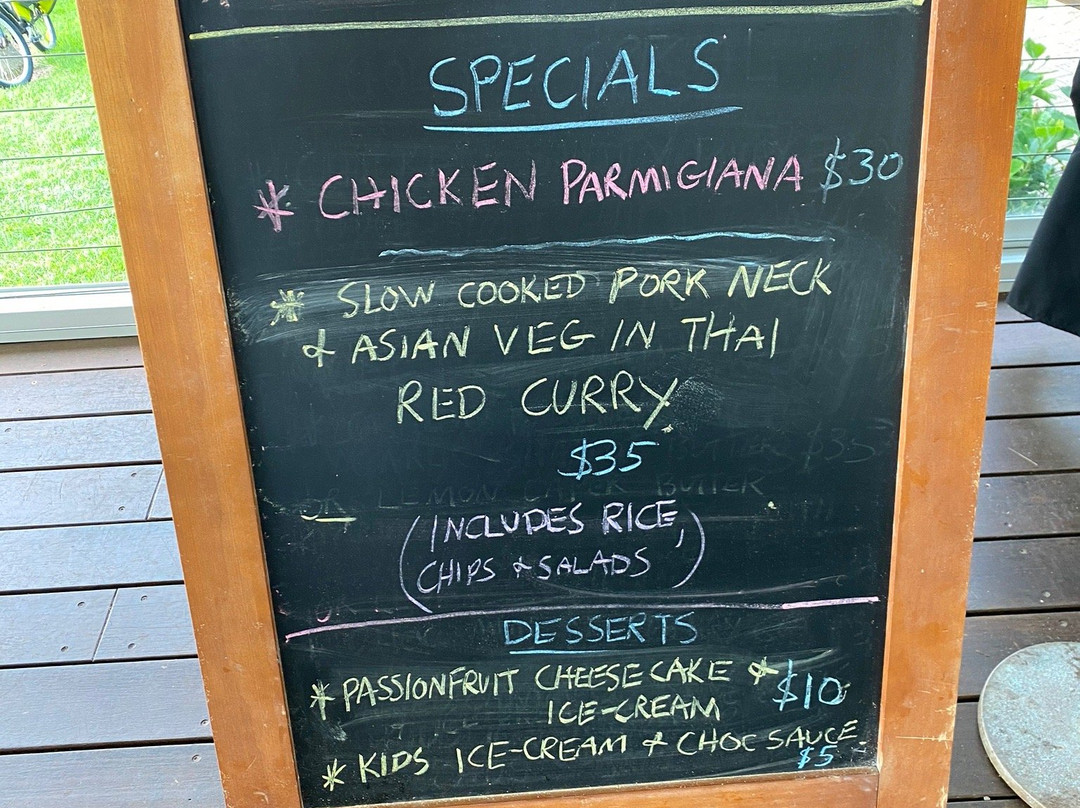 SPECIALS
* CHICKEN PARMIGIANA $30
* SLOW COOKED PORK NECK
& ASIAN VEG IN THAI
RED CURRY
$35
BUTTER $35
OR LEMON BUTTER
(INCLUDES RICE,
CHIPS & SALADS)
DESSERTS
* PASSIONFRUIT CHEESECAKE & $10
ICE-CREAM
* KIDS ICE-CREAM & CHOC SAUCE
$5